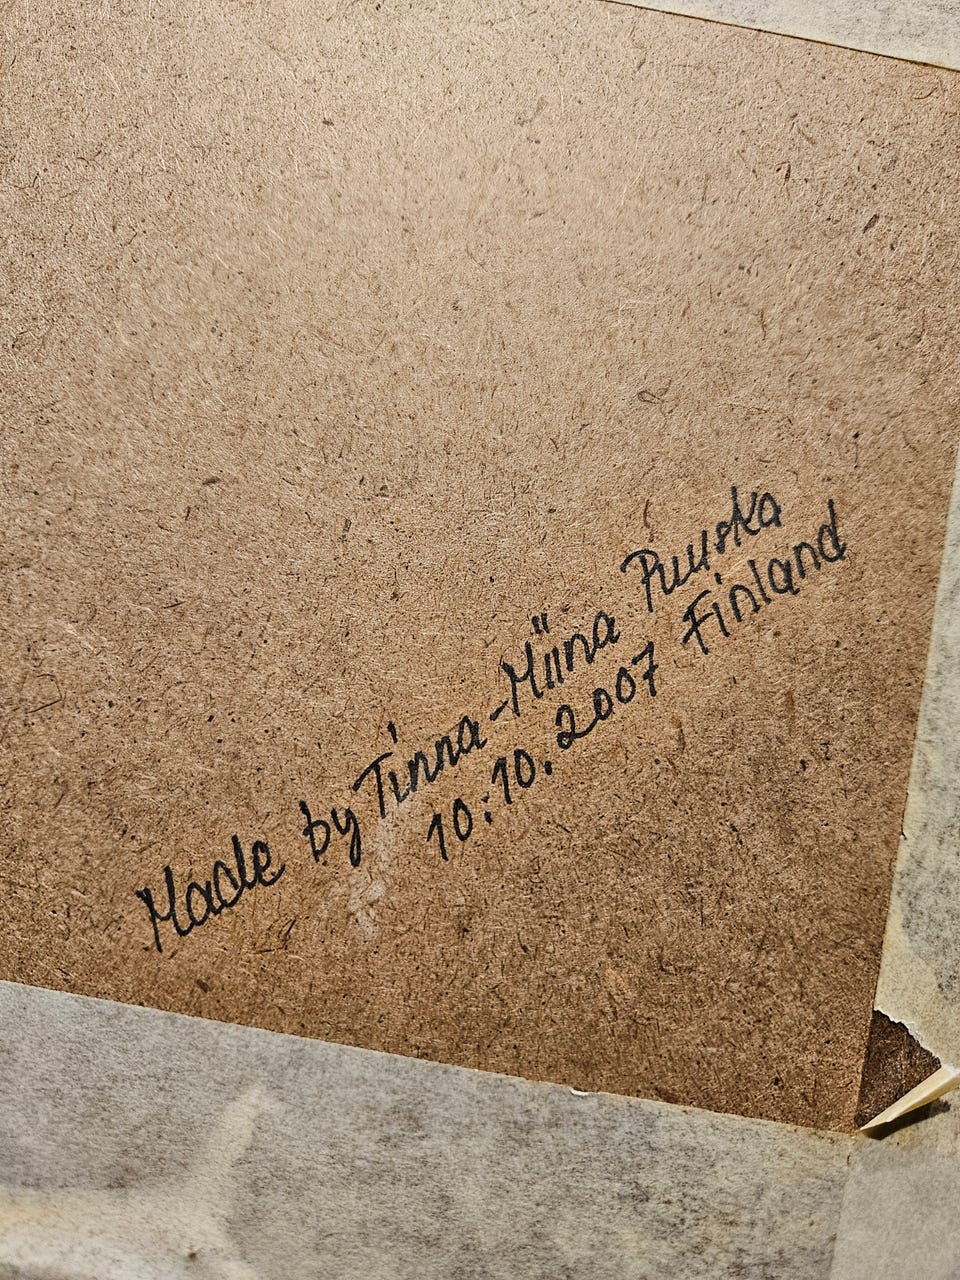 Made by Tinna-Miina Puuska
10.10.2007 Finland